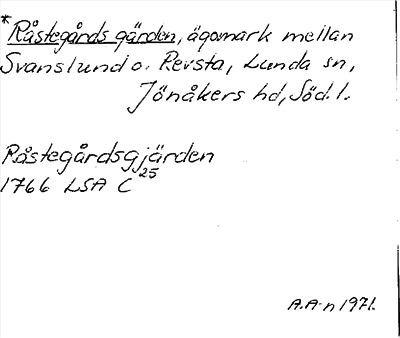 *Råstegårds gärden, ägomark mellan
Svanslund o. Revsta, Lunda sn,
Jönåkers hd, Söd. l.
Råstegårdsgjärden
1766 LSA C 25
A.A-n 1971.